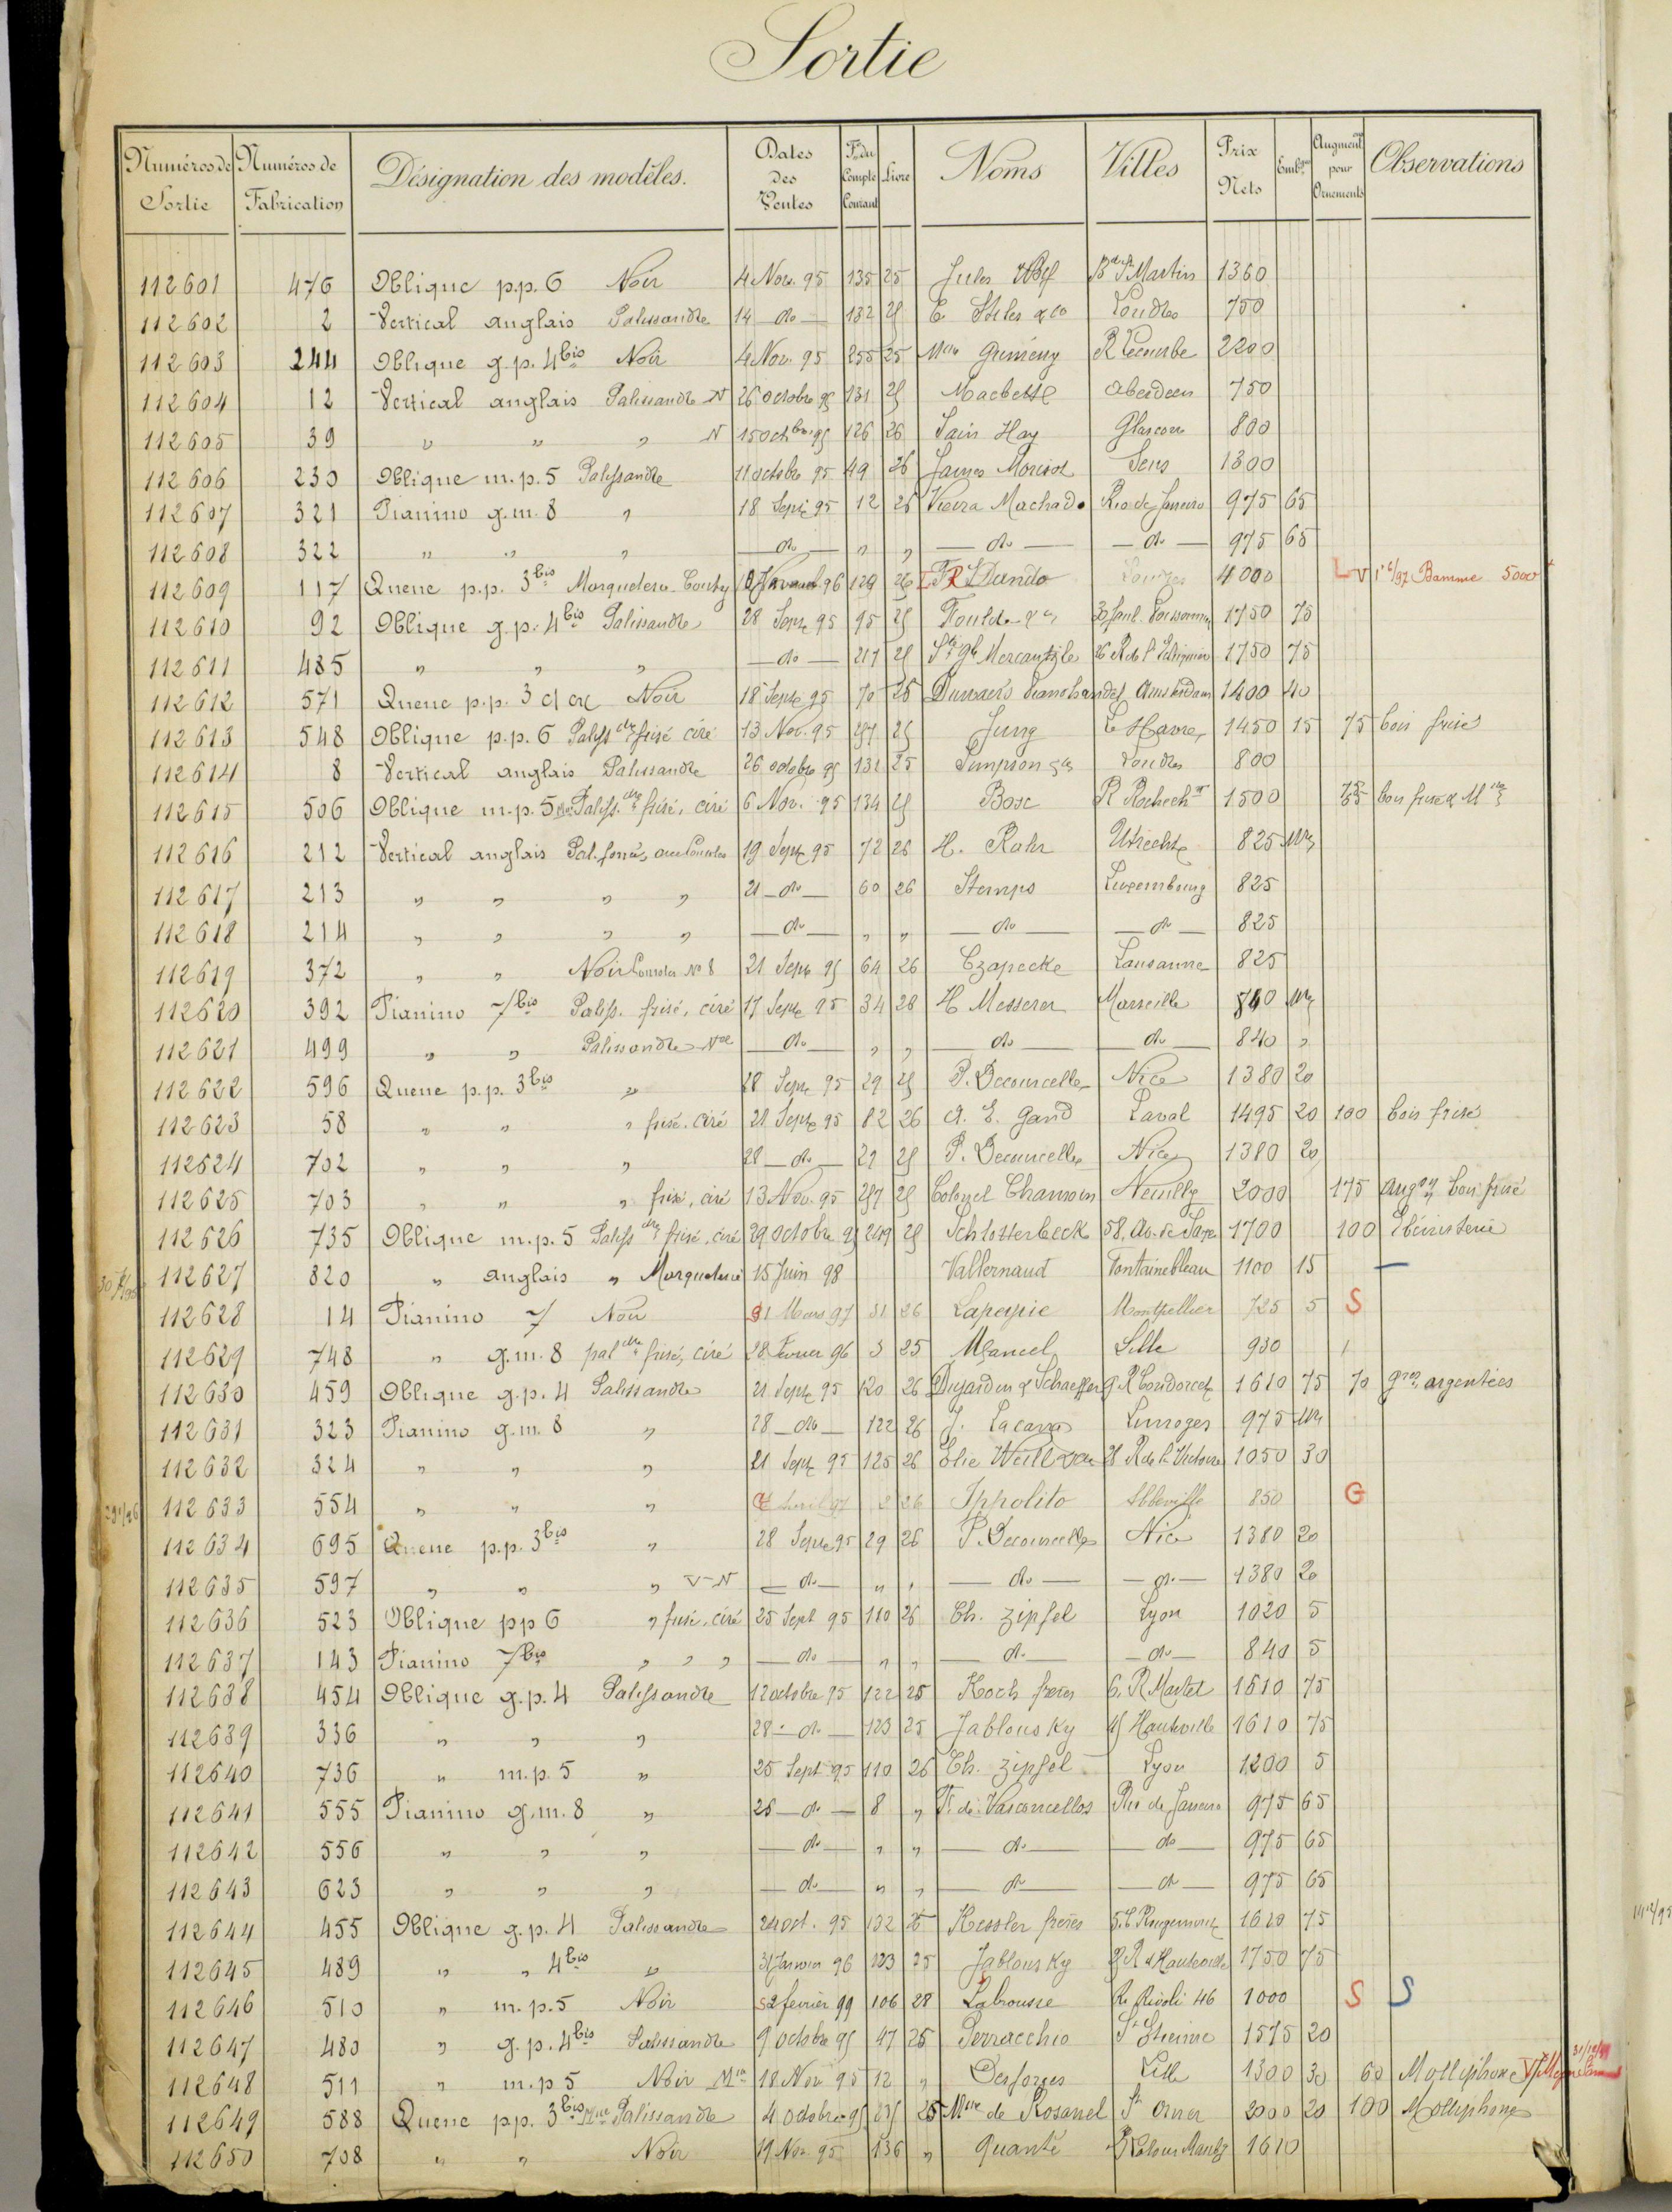 Sortie
Numéros de Sortie Numéros de Fabrication Désignation des modèles. Dates des Ventes Fo du Compte Courant Livre Noms Villes Prix Nets Emb.ge Augment pour Ornements Observations
112601 476 Oblique p.p. 6 Noir 4 Nov. 95 135 25 Jules Bd St Martin 1360
112602 2 Vertical anglais Palissandre 14 do 132 25 E. Stiles & Co Londres 750
112603 244 Oblique g.p. 4bis Noir 4 Nov. 95 255 25 R Lecourbe 2200
112604 12 Vertical anglais Palissandre N 26 octobre 95 131 25 Aberdeen 750
112605 39 " " " N 15 octbre 95 126 26 Hay Glascow 800
112606 230 Oblique m.p. 5 Palissandre 11 octobre 95 49 26 James Morisot Sens 1300
112607 321 Pianino g.m. 8 " 18 Septe 95 12 25 Vieira Machado Rio de Janeiro 975 65
112608 322 " " " do " " do do 975 65
112609 117 Queue p.p. 3bis 96 129 26 Dando Londres 4000 5000
112610 92 Oblique g.p. 4bis Palissandre 28 Septe 95 95 25 1750 75
112611 485 " " " do 217 25 Mercantile 1750 75
112612 571 Queue p.p. 3 Noir 18 Septe 95 70 25 Amsterdam 1400 40
112613 548 Oblique p.p. 6 Paliss dre frisé ciré 13 Nov. 95 257 25 Jung Le Havre 1450 15 75 bois frisé
112614 8 Vertical anglais Palissandre 26 octobre 95 131 25 Simpson Londres 800
112615 506 Oblique m.p. 5 Paliss. dre frisé, ciré 6 Nov. 95 134 25 Bosc 1500 bois frisé
112616 212 Vertical anglais Pal. foncé, avec Consoles 19 Septe 95 72 26 H. Rahr Utrecht 825
112617 213 " " " " 21 do 60 26 Stemps Luxembourg 825
112618 214 " " " " do " " do do 825
112619 372 " " Noir Consoles No 8 21 Septe 95 64 26 Czapecke Lausanne 825
112620 392 Pianino 7bis Paliss. frisé, ciré 17 Septe 95 34 28 H Messerer Marseille 840
112621 499 " " Palissandre do " " do do 840 "
112622 596 Queue p.p. 3bis " 28 Septe 95 29 25 P. Decourcelle Nice 1380 20
112623 58 " " " frisé. ciré 21 Septe 95 82 26 A. E. Gand Laval 1495 20 100 bois frisé
112624 702 " " " 28 do 29 25 P. Decourcelle Nice 1380 20
112625 703 " " " frisé, ciré 13 Nov. 95 257 25 Colonel Chamoin Neuilly 2000 175 bois frisé
112626 735 Oblique m.p. 5 Paliss dre frisé, ciré 29 octobre 95 249 25 Schlotterbeck 58, Av. de Saxe 1700 100 Ebénisterie
112627 820 " anglais " Marqueterie 15 Juin 98 Vallernaud Fontainebleau 1100 15
112628 14 Pianino 7 Noir 31 Mars 97 31 26 Lapeyrie Montpellier 725 5 S
112629 748 " g.m. 8 pal dre frisé, ciré 28 Fevrier 96 3 25 Mancel Lille 930
112630 459 Oblique g.p. 4 Palissandre 21 Septe 95 120 26 Dujardin & Schaeffer 9. R Condorcet 1610 75 70 argentées
112631 323 Pianino g.m. 8 " 28 do 122 26 J. Lacarra Limoges 975
112632 324 " " " 21 Septe 95 125 26 Elie Weill R de la Victoire 1050 30
112633 554 " " " Avril 97 2 26 Ippolito Abbeville 850 G
112634 695 Queue p.p. 3bis " 28 Septe 95 29 26 P. Decourcelle Nice 1380 20
112635 597 " " " V-N do " " do do 1380 20
112636 523 Oblique pp 6 " frisé. ciré 25 Sept 95 110 26 Ch. Zipfel Lyon 1020 5
112637 143 Pianino 7bis " " " do " " do do 840 5
112638 454 Oblique g.p. 4 Palissandre 12 octobre 95 122 25 Koch frères 6, R Martel 1610 75
112639 336 " " " 28 do 123 25 Jablonsky Hauteville 1610 75
112640 736 " m.p. 5 " 25 Sept 95 110 26 Ch. Zipfel Lyon 1200 5
112641 555 Pianino g.m. 8 " 25 do 8 " F. de Vasconcellos Rio de Janeiro 975 65
112642 556 " " " do " " do do 975 65
112643 623 " " " do " " do do 975 65
112644 455 Oblique g.p. 4 Palissandre 24 oct. 95 132 25 Kessler frères Rougemont 1610 75
112645 489 " " 4bis " 31 Janvier 96 123 25 Jablonsky R d'Hauteville 1750 75
112646 510 " m.p. 5 Noir 2 fevrier 99 106 28 Labrousse R. Rivoli 46 1000 S S
112647 480 " g.p. 4bis Palissandre 9 octobre 95 47 25 Perracchio St Etienne 1575 20
112648 511 " m.p 5 Noir 18 Nov 95 12 " Desforges Lille 1300 30 60 Molliphone
112649 588 Queue p.p. 3bis Palissandre 4 octobre 95 25 Mme de Rosanel St Omer 2000 20 100 Molliphone
112650 708 " " Noir 19 Nov. 95 136 " Quanté 1610